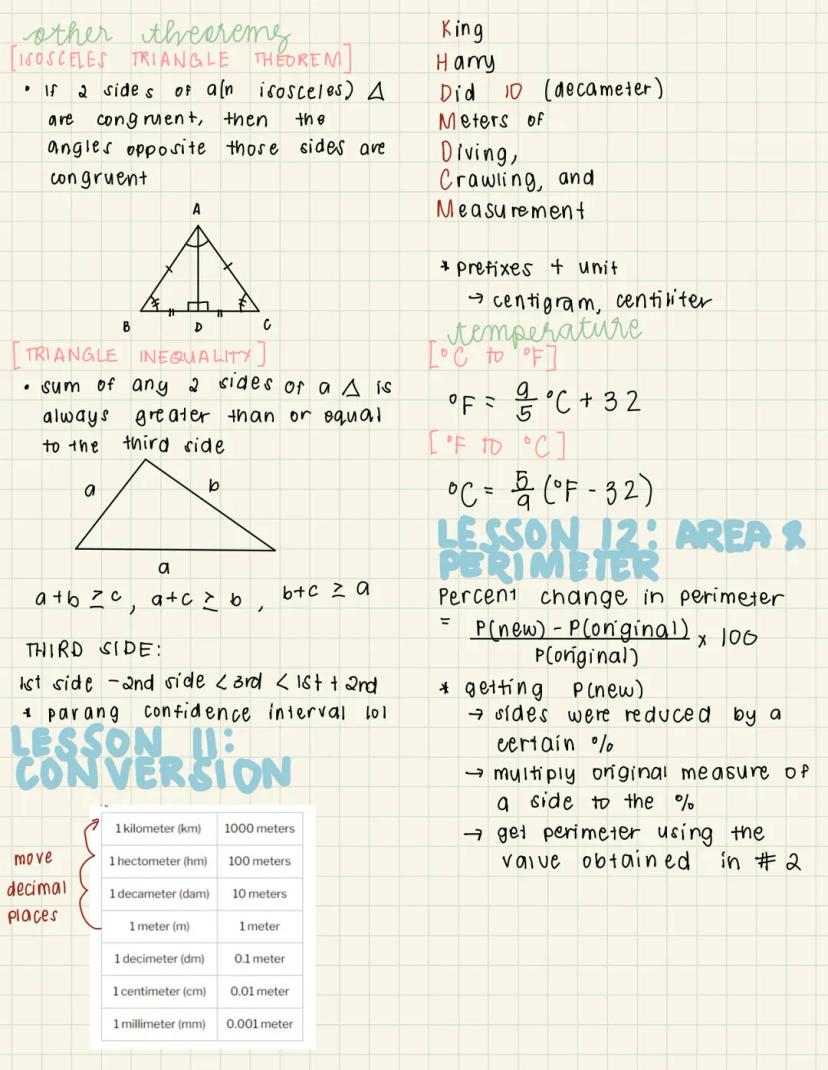 other theorems
[ISOSCELES TRIANGLE THEOREM]
• If 2 sides of a(n isosceles) △
are congruent, then the
angles opposite those sides are
congruent
A
B D C
[TRIANGLE INEQUALITY]
• sum of any 2 sides of a △ is
always greater than or equal
to the third side
a b
a
a+b ≥ c, a+c ≥ b, b+c ≥ a
THIRD SIDE:
1st side - 2nd side < 3rd < 1st + 2nd
* parang confidence interval lol
LESSON 11:
CONVERSION
move
decimal
places
1 kilometer (km) 1000 meters
1 hectometer (hm) 100 meters
1 decameter (dam) 10 meters
1 meter (m) 1 meter
1 decimeter (dm) 0.1 meter
1 centimeter (cm) 0.01 meter
1 millimeter (mm) 0.001 meter
King
Harry
Did 10 (decameter)
Meters of
Diving,
Crawling, and
Measurement
* prefixes + unit
→ centigram, centiliter
temperature
[°C to °F]
°F = 9/5 °C + 32
[°F TO °C]
°C = 5/9 (°F - 32)
LESSON 12: AREA &
PERIMETER
Percent change in perimeter
= P(new) - P(original) / P(original) x 100
* getting P(new)
→ sides were reduced by a
certain %
→ multiply original measure of
a side to the %
→ get perimeter using the
value obtained in # 2